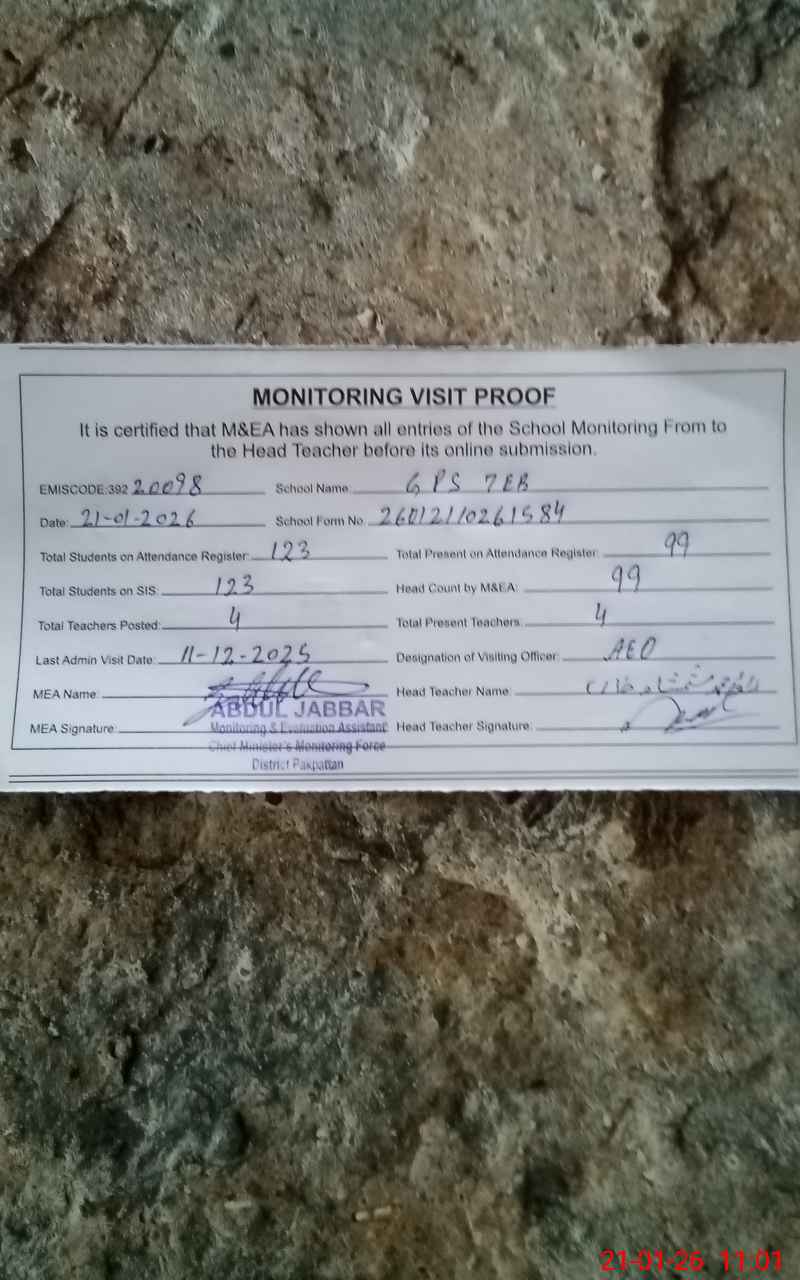 MONITORING VISIT PROOF
It is certified that M&EA has shown all entries of the School Monitoring From to
the Head Teacher before its online submission.
EMISCODE:392 20098 School Name: GPS 7EB
Date: 21-01-2026 School Form No. 26012110261584
Total Students on Attendance Register: 123 Total Present on Attendance Register: 99
Total Students on SIS: 123 Head Count by M&EA: 99
Total Teachers Posted: 4 Total Present Teachers: 4
Last Admin Visit Date: 11-12-2025 Designation of Visiting Officer: AEO
MEA Name: Head Teacher Name:
ABDUL JABBAR
MEA Signature: Monitoring & Evaluation Assistant Head Teacher Signature:
Chief Minister's Monitoring Force
District Pakpattan
21-01-26 11:01